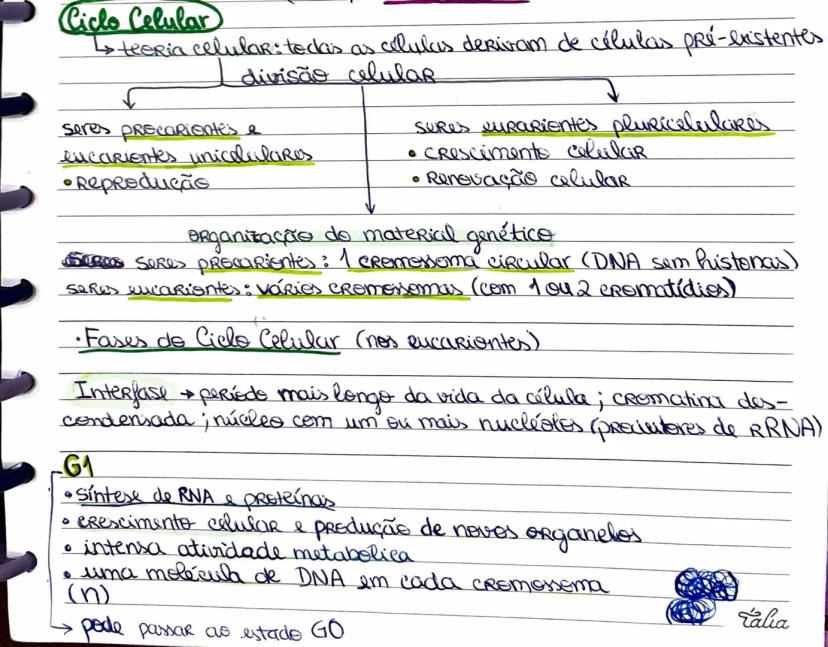 Ciclo Celular
↳ teoria celular: todas as células derivam de células pré-existentes
divisão celular
seres procariontes e
eucariontes unicelulares
• Reprodução
seres eucariontes pluricelulares
• crescimento celular
• Renovação celular
organização do material genético
seres procariontes: 1 cromossoma circular (DNA sem histonas)
seres eucariontes: vários cromossomas (com 1 ou 2 cromatídios)
· Fases do Ciclo Celular (nos eucariontes)
Interfase → período mais longo da vida da célula; cromatina des-
condensada; núcleo com um ou mais nucléolos (produtores de RRNA)
G1
• síntese de RNA e proteínas
• crescimento celular e produção de novos organelos
• intensa atividade metabolica
• uma molécula de DNA em cada cromossoma
(n)
→ pode passar ao estado G0
Tália